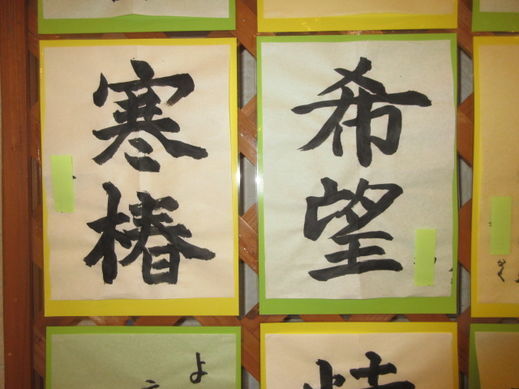 寒椿
希望
よ